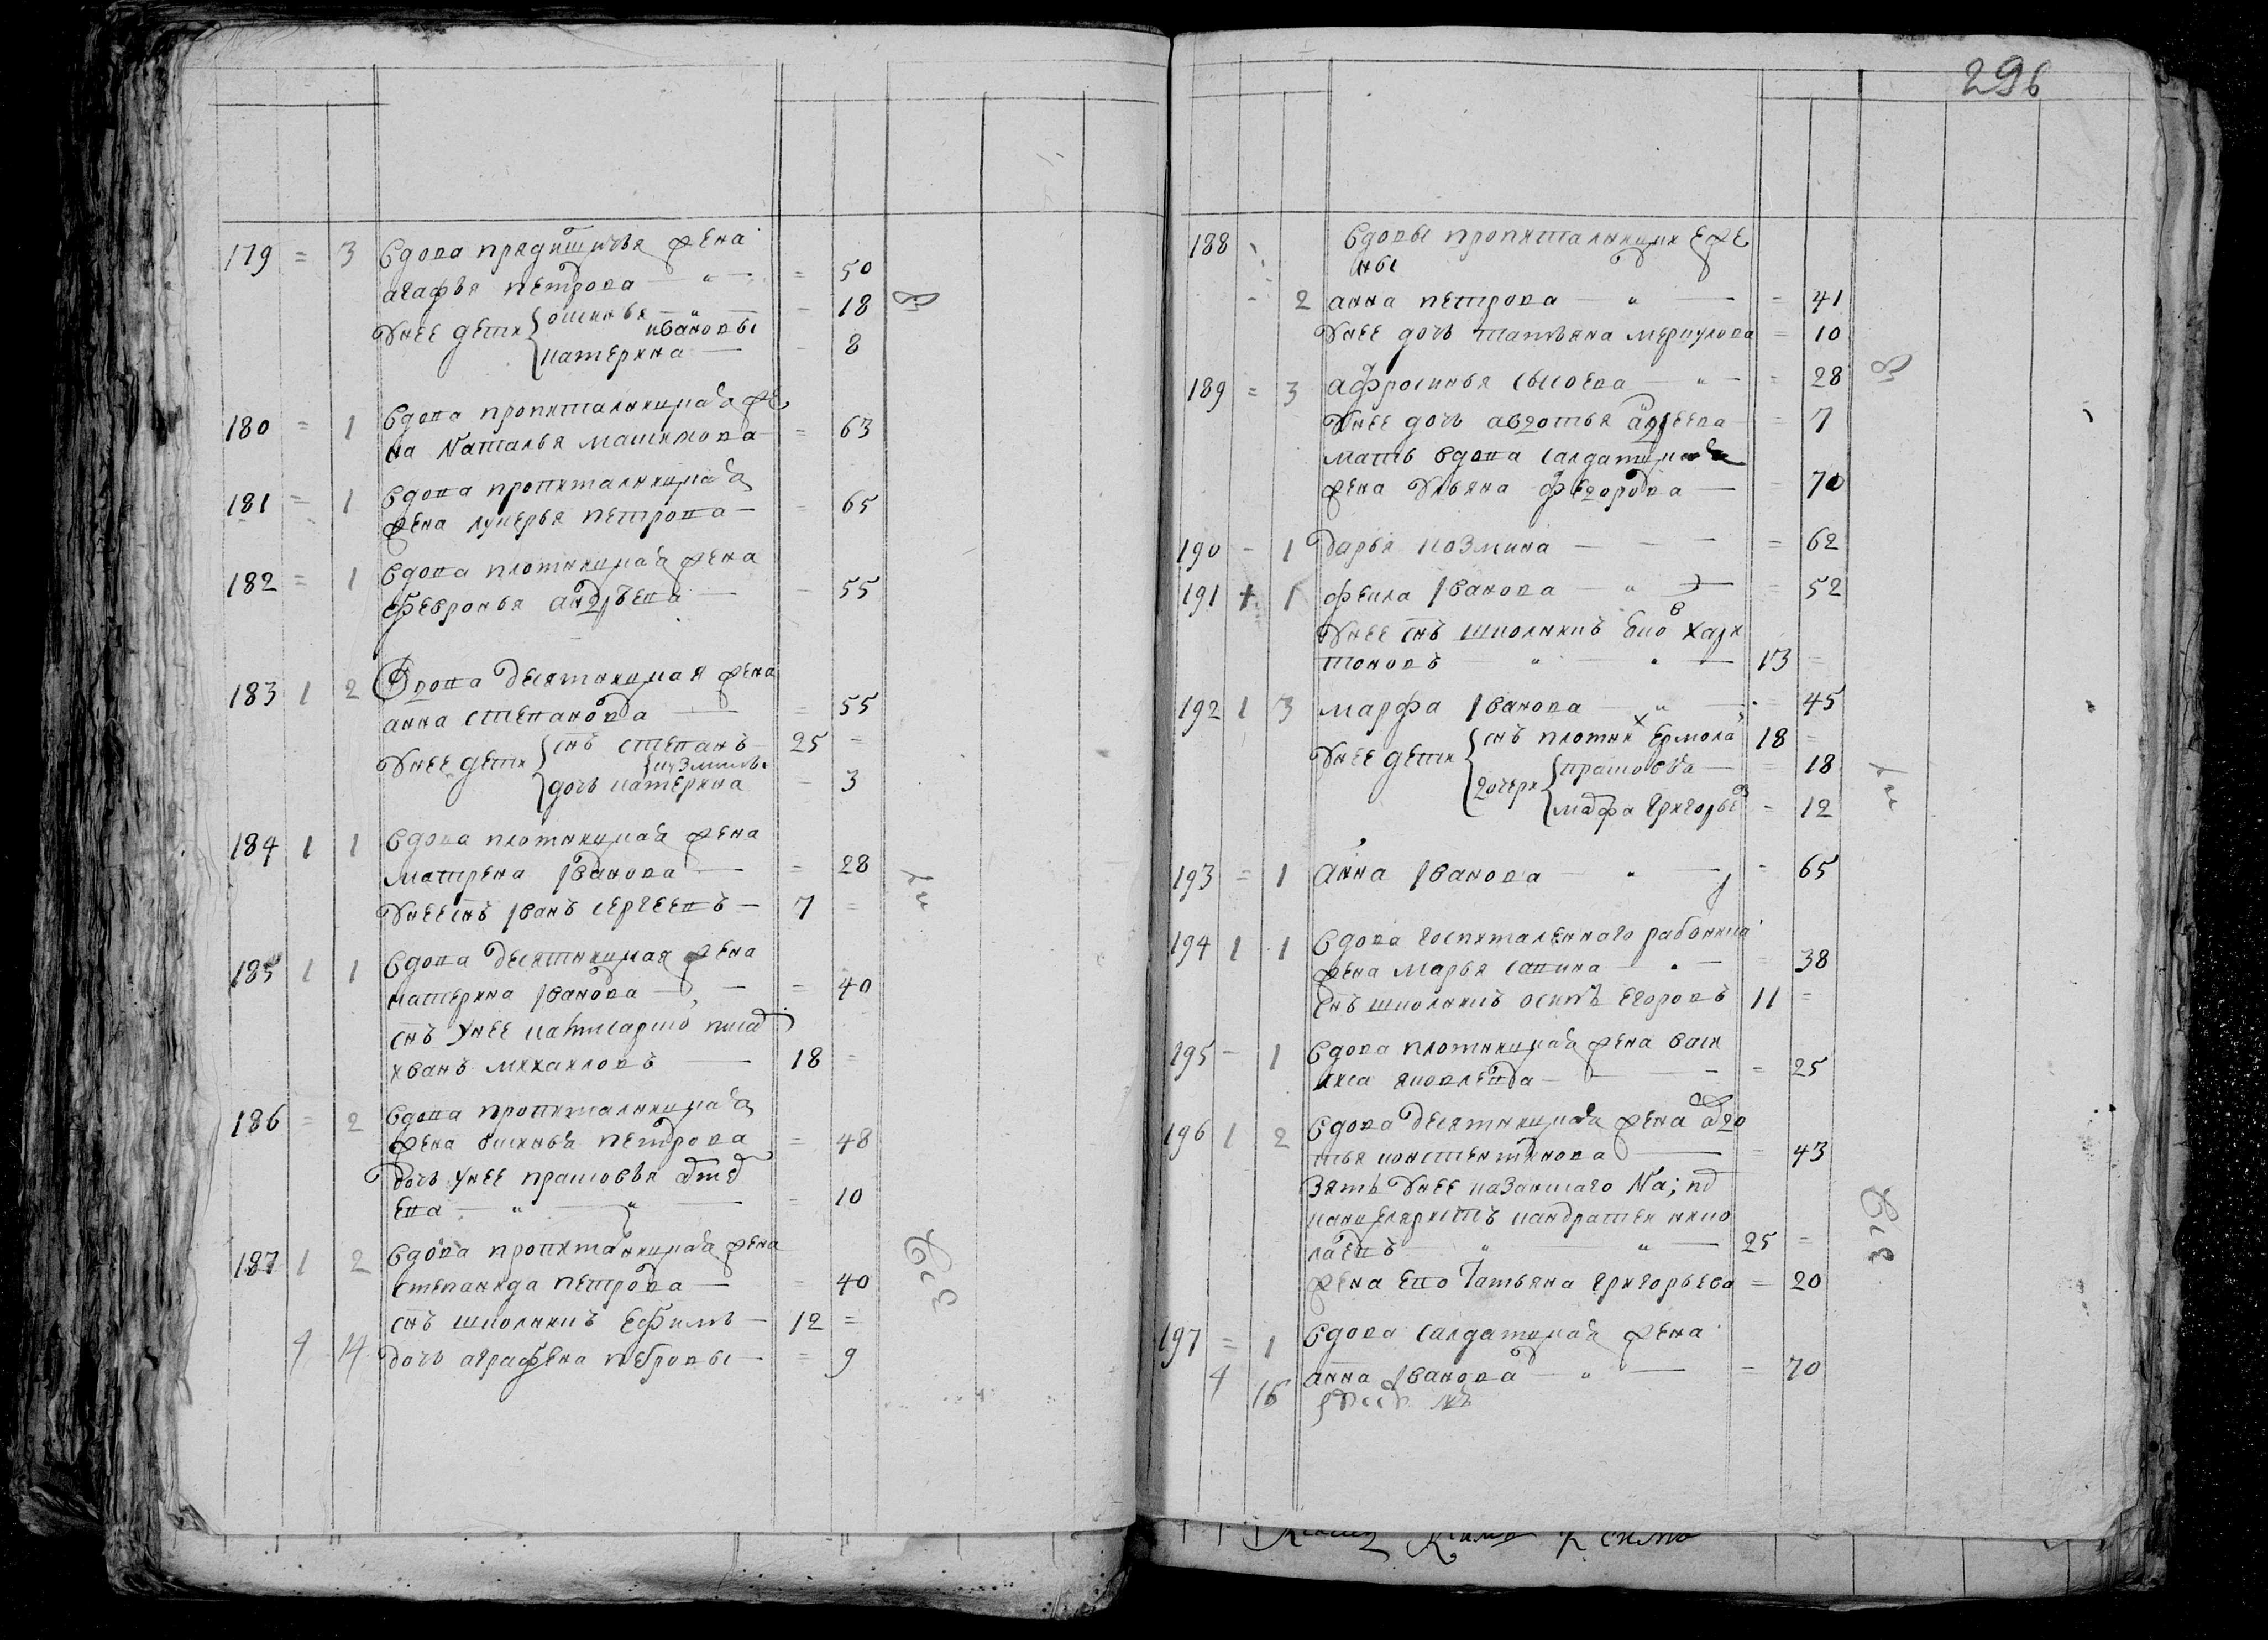 179 = 3 Вдова прядишичья жена
агафья петрова — " — = 50
Унее дети { офимья — " — = 18
ивановы
{ катерина — = 8
180 = 1 Вдова пропиталницкая же
на Наталья максимова = 63
181 = 1 Вдова пропиталницкая
жена лукерья петрова — = 65
182 = 1 Вдова плотницкая жена
Февронья андреева — = 55
183 1 2 Вдова десятницкая жена
анна степанова — = 55
Унее дети { снъ степанъ 25 =
{ дочь катерина = 3
184 1 1 Вдова плотницкая жена
матрена Iванова — = 28
Унее снъ Iванъ сергеевъ — 7 =
185 1 1 Вдова десятницкая жена
катерина Iванова — = 40
снъ Унее
иванъ михаиловъ — 18 =
186 = 2 Вдова пропиталницкая
жена петрова = 48
дочь Унее прасковья
ева — " — " — = 10
187 1 2 Вдова пропиталницкая жена
степанида петрова — = 40
снъ школникъ Ефимъ — 12 =
4 14 дочь аграфена петровы — = 9
296
188 Вдовы пропиталницкия же
ны
2 анна петрова — " — = 41
Унее дочь татьяна меркулова = 10
189 = 3 афросинья сысоева — " — = 28
Унее дочь авдотья андреева = 7
мать вдова салдатцкая
жена Ульяна Федорова — = 70
190 - 1 дарья козмина — — — = 62
191 + 1 фекла Iванова — " — = 52
Унее снъ школникъ хари
тоновъ — " — " — 13 =
192 1 3 марфа Iванова — " — = 45
Унее дети { снъ плотник Ермола 18 =
{ дочери { прасковья — = 18
{ марфа григорьевы = 12
193 = 1 анна Iванова — " — = 65
194 1 1 Вдова госпиталенного работника
жена марья савина — " — = 38
снъ школникъ осипъ егоровъ 11 =
195 - 1 Вдова плотницкая жена васи
лиса яковлева — = 25
196 1 2 Вдова десятницкая жена авдо
тья констентинова — = 43
Зять Унее казанскаго
канцеляристъ кандратеи нико
лаевъ — " — " — 25 =
жена ево Татьяна григорьева = 20
197 = 1 Вдова салдатцкая жена
анна Iванова — " — = 70
4 16